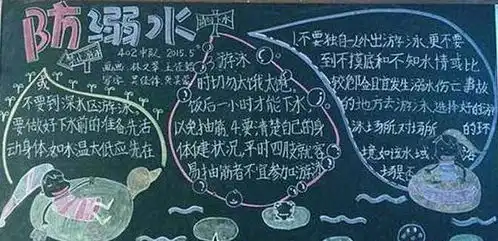 防溺水
402中队 2015.5
禁止游泳
游泳
时切勿太饿太饱
饭后一小时才能下水
以免抽筋。4.要清楚自己的身
体健状况,平时四肢就容
易抽筋者不宜参加游泳
或
不要到深水区游泳
要做好下水前的准备先活
动身体,如水温太低应先在
1.不要独自人外出游泳,更不要
到不摸底和不知水情或比
较危险且宜发生溺水伤亡事故
的地方去游泳,选择好的游
泳场所,对场所的环
境,如
水域